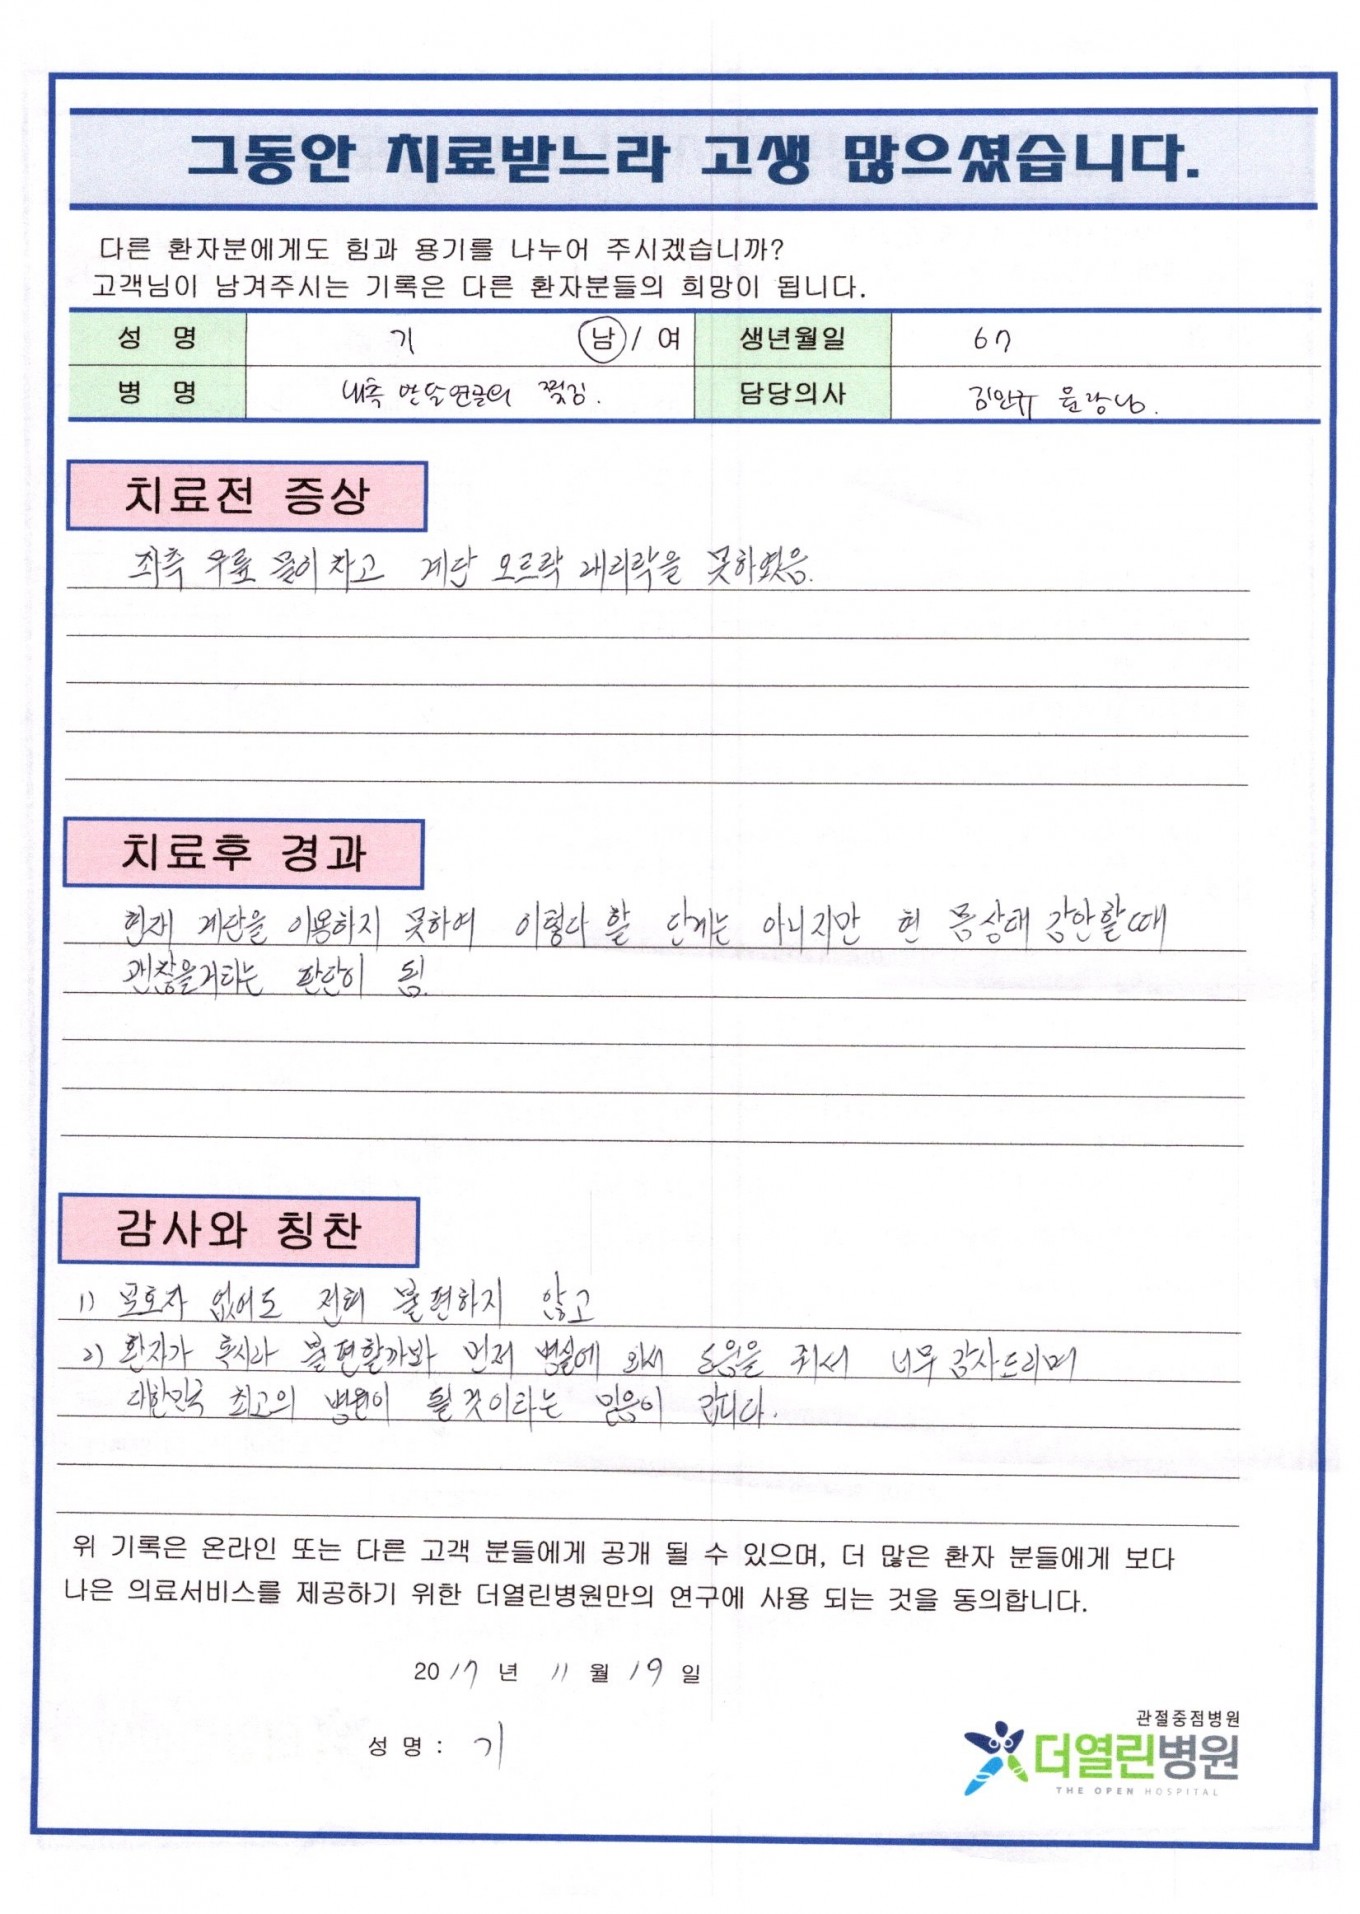 그동안 치료받느라 고생 많으셨습니다.
다른 환자분에게도 힘과 용기를 나누어 주시겠습니까?
고객님이 남겨주시는 기록은 다른 환자분들의 희망이 됩니다.
성 명 기 남 / 여 생년월일 67
병 명 내측 반월연골의 찢김. 담당의사
치료전 증상
좌측 무릎 물이 차고 계단 오르락 내리락을 못하였음.
치료후 경과
현재 계단을 이용하지 못하여 이렇다 할 단계는 아니지만 현 몸상태 감안할때
괜찮을거라는 판단이 됨.
감사와 칭찬
1) 보호자 없어도 전혀 불편하지 않고
2) 환자가 혹시라 불편할까봐 먼저 병실에 와서 도움을 줘서 너무 감사드리며
대한민국 최고의 병원이 될것이라는 믿음이 갑니다.
위 기록은 온라인 또는 다른 고객 분들에게 공개 될 수 있으며, 더 많은 환자 분들에게 보다
나은 의료서비스를 제공하기 위한 더열린병원만의 연구에 사용 되는 것을 동의합니다.
2017 년 11 월 19 일
성 명 : 기
관절중점병원
더열린병원
THE OPEN HOSPITAL